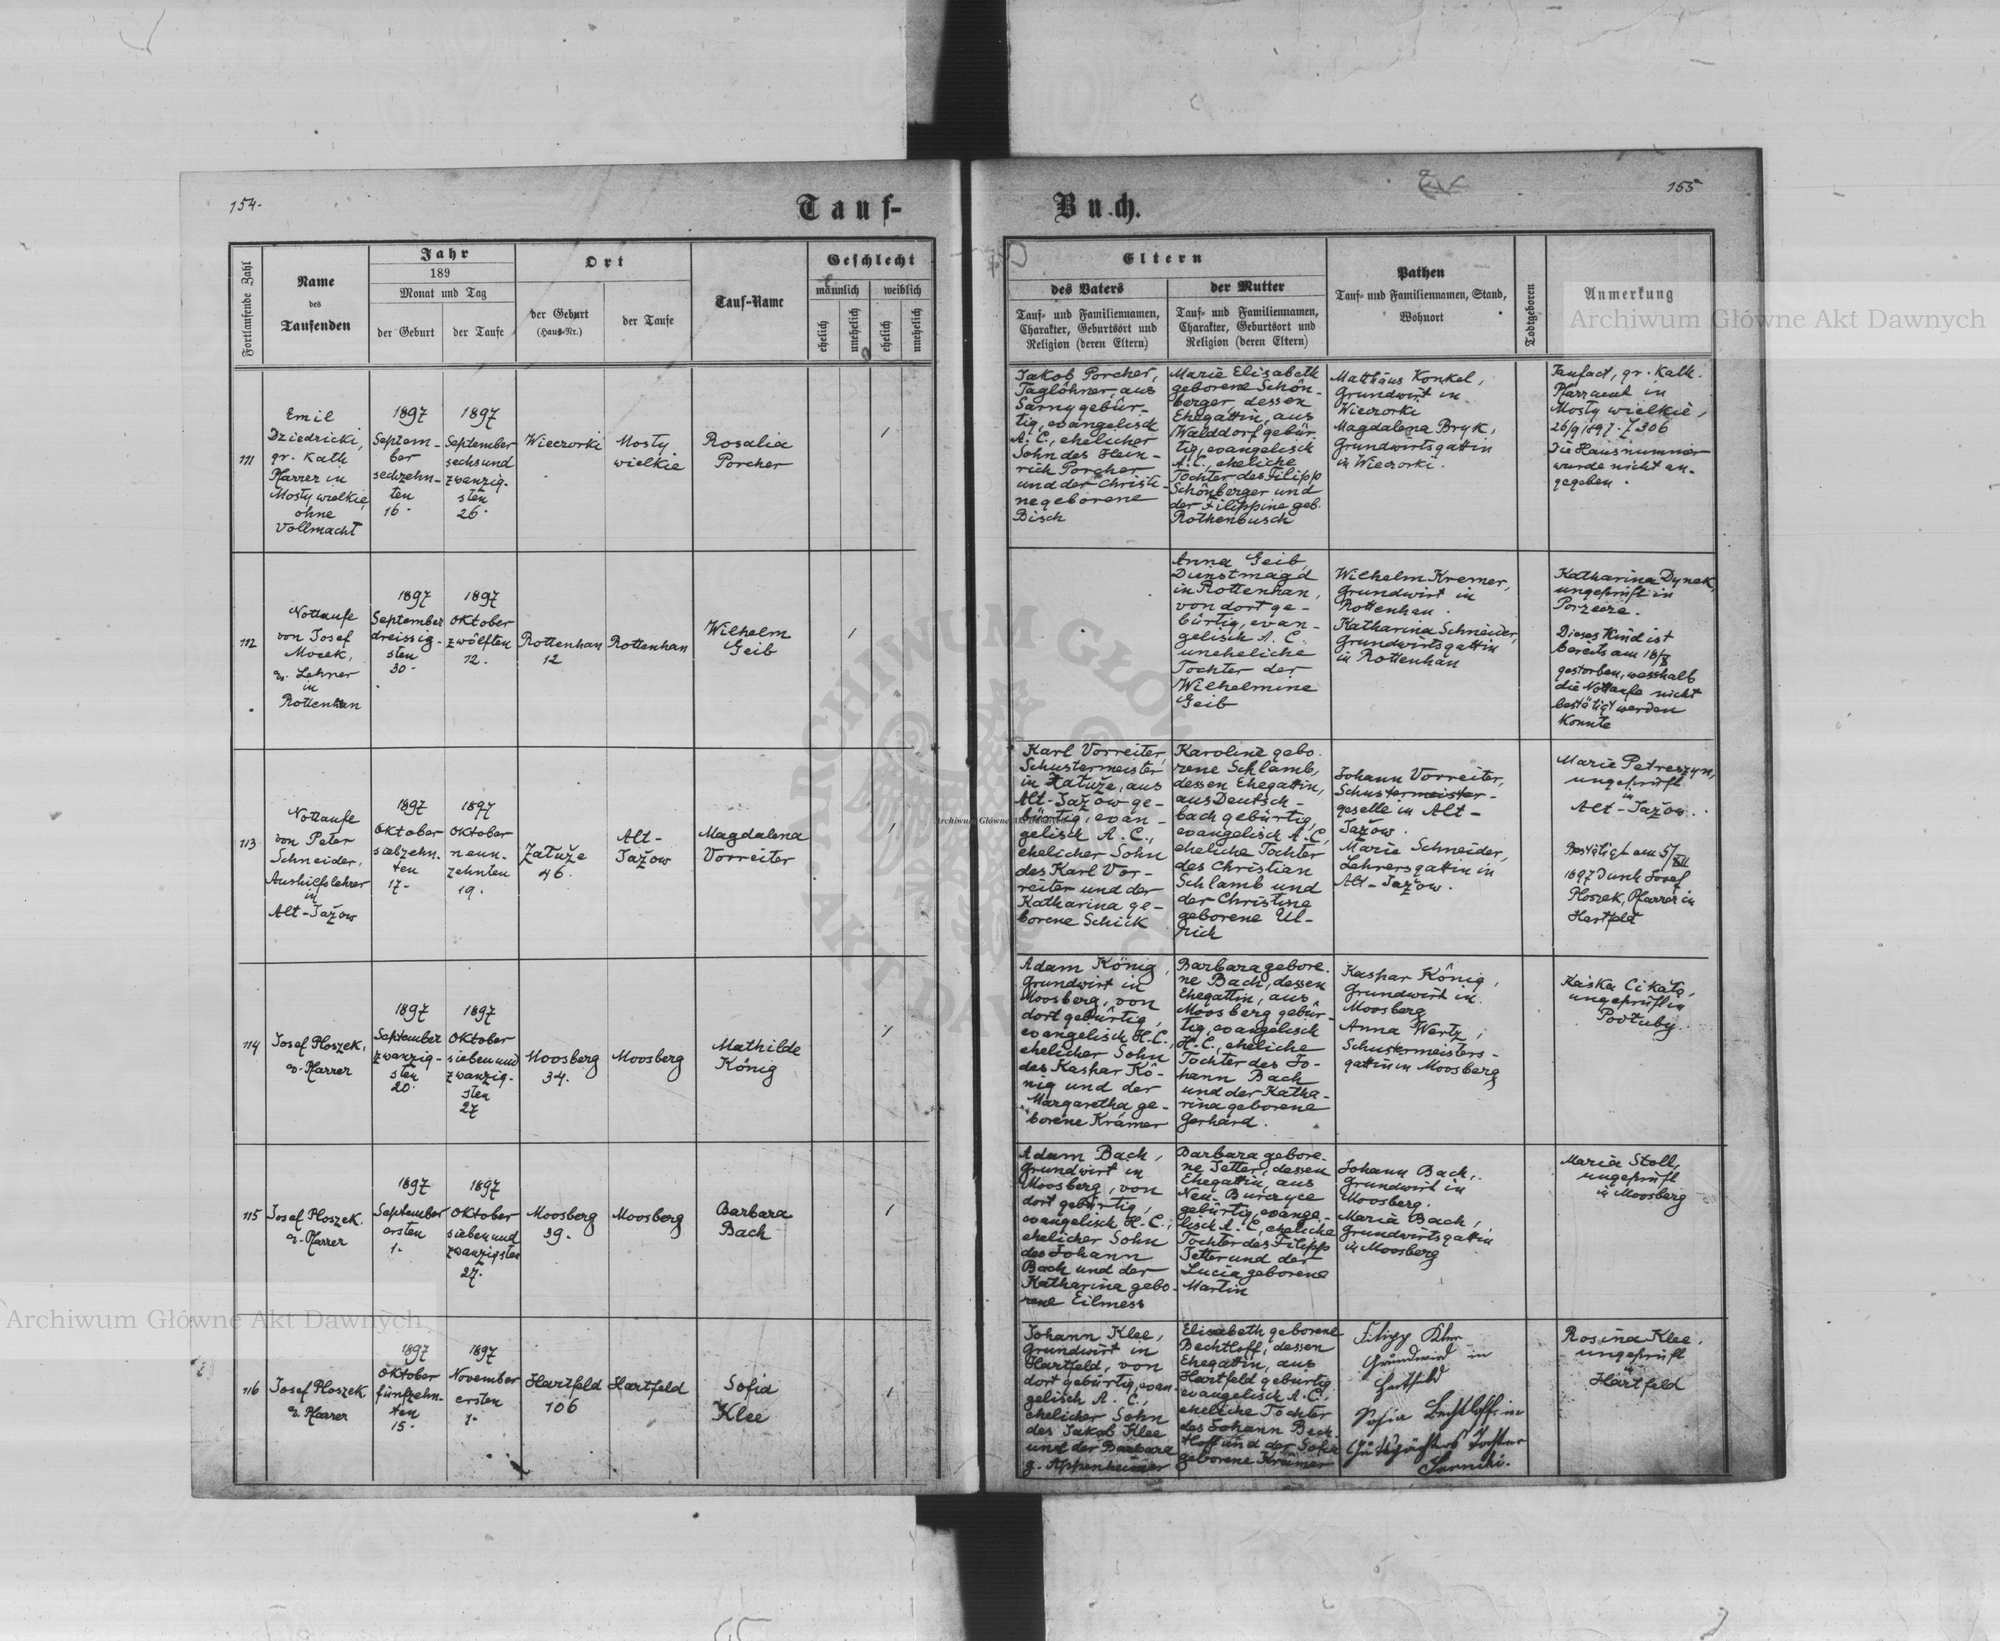 154.
Tauf-
Fortlaufende Zahl
Name
des
Taufenden
Jahr
189
Monat und Tag
der Geburt
der Taufe
Ort
der Geburt
(Haus-Nr.)
der Taufe
Tauf-Name
Geschlecht
männlich
weiblich
ehelich
unehelich
ehelich
unehelich
111
Emil
Dziedzicki,
gr. kath
Pfarrer in
Mosty wielkie,
ohne
Vollmacht
1897
Septem-
ber
sechzehn-
ten
16.
1897
September
sechsund
zwanzig-
sten
26.
Wieczorki
Mosty
wielkie
Rosalia
Porcher
1
112
Nottaufe
von Josef
Mocek,
ev. Lehrer
in
Rottenhan
1897
September
dreissig-
sten
30.
1897
Oktober
zwölften
12.
Rottenhan
12
Rottenhan
Wilhelm
Geib
1
113
Nottaufe
von Peter
Schneider,
Aushilfslehrer
in
Alt-Jažow
1897
Oktober
siebzehn-
ten
17.
1897
Oktober
neun-
zehnten
19.
Załuże
46.
Alt-
Jažow
Magdalena
Vorreiter
1
114
Josef Ploszek,
ev. Pfarrer
1897
September
zwanzig-
sten
20.
1897
Oktober
sieben und
zwanzig-
sten
27
Moosberg
34.
Moosberg
Mathilde
König
1
115
Josef Ploszek.
ev. Pfarrer
1897
September
ersten
1.
1897
Oktober
sieben und
zwanzigsten
27.
Moosberg
39.
Moosberg
Barbara
Bach
1
116
Josef Ploszek
ev. Pfarrer
1897
Oktober
fünfzehn-
ten
15.
1897
November
ersten
1.
Hartfeld
106
Hartfeld
Sofia
Klee
1
Buch.
155
Eltern
des Vaters
Tauf- und Familiennamen,
Charakter, Geburtsort und
Religion (deren Eltern)
der Mutter
Tauf- und Familiennamen,
Charakter, Geburtsort und
Religion (deren Eltern)
Pathen
Tauf- und Familiennamen, Stand,
Wohnort
Todtgeboren
Anmerkung
Jakob Porcher,
Taglöhner, aus
Sarny gebür-
tig, evangelisch
A. C., ehelicher
Sohn des Hein-
rich Porcher
und der Christi-
ne geborene
Bisch
Marie Elisabeth
geborene Schön-
berger dessen
Ehegattin, aus
Walddorf gebür-
tig, evangelisch
A. C., eheliche
Tochter des Filipp
Schönberger und
der Filippine geb.
Rothenbusch
Matthäus Konkel,
Grundwirt in
Wieczorki
Magdalena Bryk,
Grundwirtsgattin
in Wieczorki.
Taufact, gr. kath.
Pfarramt in
Mosty wielkie,
26/9 1897. Z 306
Die Hausnummer
wurde nicht an-
gegeben.
Anna Geib,
Dienstmagd
in Rottenhan,
von dort ge-
bürtig, evan-
gelisch A. C.
uneheliche
Tochter der
Wilhelmine
Geib
Wilhelm Kremer,
Grundwirt in
Rottenhan.
Katharina Schneider,
Grundwirtsgattin
in Rottenhan
Katharina Dynek,
ungeprüft in
Porzecze.
Dieses Kind ist
bereits am 18/X
gestorben, wesshalb
die Nottaufe nicht
bestätigt werden
konnte
Karl Vorreiter,
Schustermeister
in Załuże, aus
Alt-Jažow ge-
bürtig, evan-
gelisch A. C.,
ehelicher Sohn
des Karl Vor-
reiter und der
Katharina ge-
borene Schick
Karoline gebo-
rene Schlamb,
dessen Ehegattin,
aus Deutsch-
bach gebürtig,
evangelisch A. C.,
eheliche Tochter
des Christian
Schlamb und
der Christine
geborene Ul-
rich
Johann Vorreiter,
Schustermeister-
geselle in Alt-
Jažow.
Marie Schneider,
Lehrersgattin in
Alt-Jažow.
Marie Petreszyn,
ungeprüft
in
Alt-Jažow.
Bestätigt am 5/XII
1897 durch Josef
Ploszek, Pfarrer in
Hartfeld
Adam König,
Grundwirt in
Moosberg, von
dort gebürtig,
evangelisch H. C.,
ehelicher Sohn
des Kaspar Kö-
nig und der
Margaretha ge-
borene Krämer
Barbara gebore-
ne Bach, dessen
Ehegattin, aus
Moosberg gebür-
tig, evangelisch
H. C., eheliche
Tochter des Jo-
hann Bach
und der Katha-
rina geborene
Gerhard.
Kaspar König,
Grundwirt in
Moosberg
Anna Wertz,
Schustermeisters-
gattin in Moosberg
Kaśka Cikało,
ungeprüft in
Podłuby.
Adam Bach,
Grundwirt in
Moosberg, von
dort gebürtig,
evangelisch H. C.,
ehelicher Sohn
des Johann
Bach und der
Katharina gebo-
rene Eilmess
Barbara gebore-
ne Jetter, dessen
Ehegattin, aus
Neu-Burczyce
gebürtig, evange-
lisch A. C., eheliche
Tochter des Filipp
Jetter und der
Lucia geborene
Martin
Johann Bach,
Grundwirt in
Moosberg.
Maria Bach,
Grundwirtsgattin
in Moosberg
Maria Stoll,
ungeprüft
in Moosberg
Johann Klee,
Grundwirt in
Hartfeld, von
dort gebürtig, evan-
gelisch A. C.,
ehelicher Sohn
des Jakob Klee
und der Barbara
g. Appenheimer
Elisabeth geborene
Bechtloff, dessen
Ehegattin, aus
Hartfeld gebürtig
evangelisch A. C.,
eheliche Tochter
des Johann Bech-
tloff und der Sofia
geborene Krämer
Filipp Klee
Grundwird in
Hartfeld
Sofia Bechtloff in
Gutspächters Tochter
Sarniki.
Rosina Klee.
ungeprüft
in
Hartfeld
Archiwum Główne Akt Dawnych
Archiwum Główne Akt Dawnych
Archiwum Główne Akt Dawnych